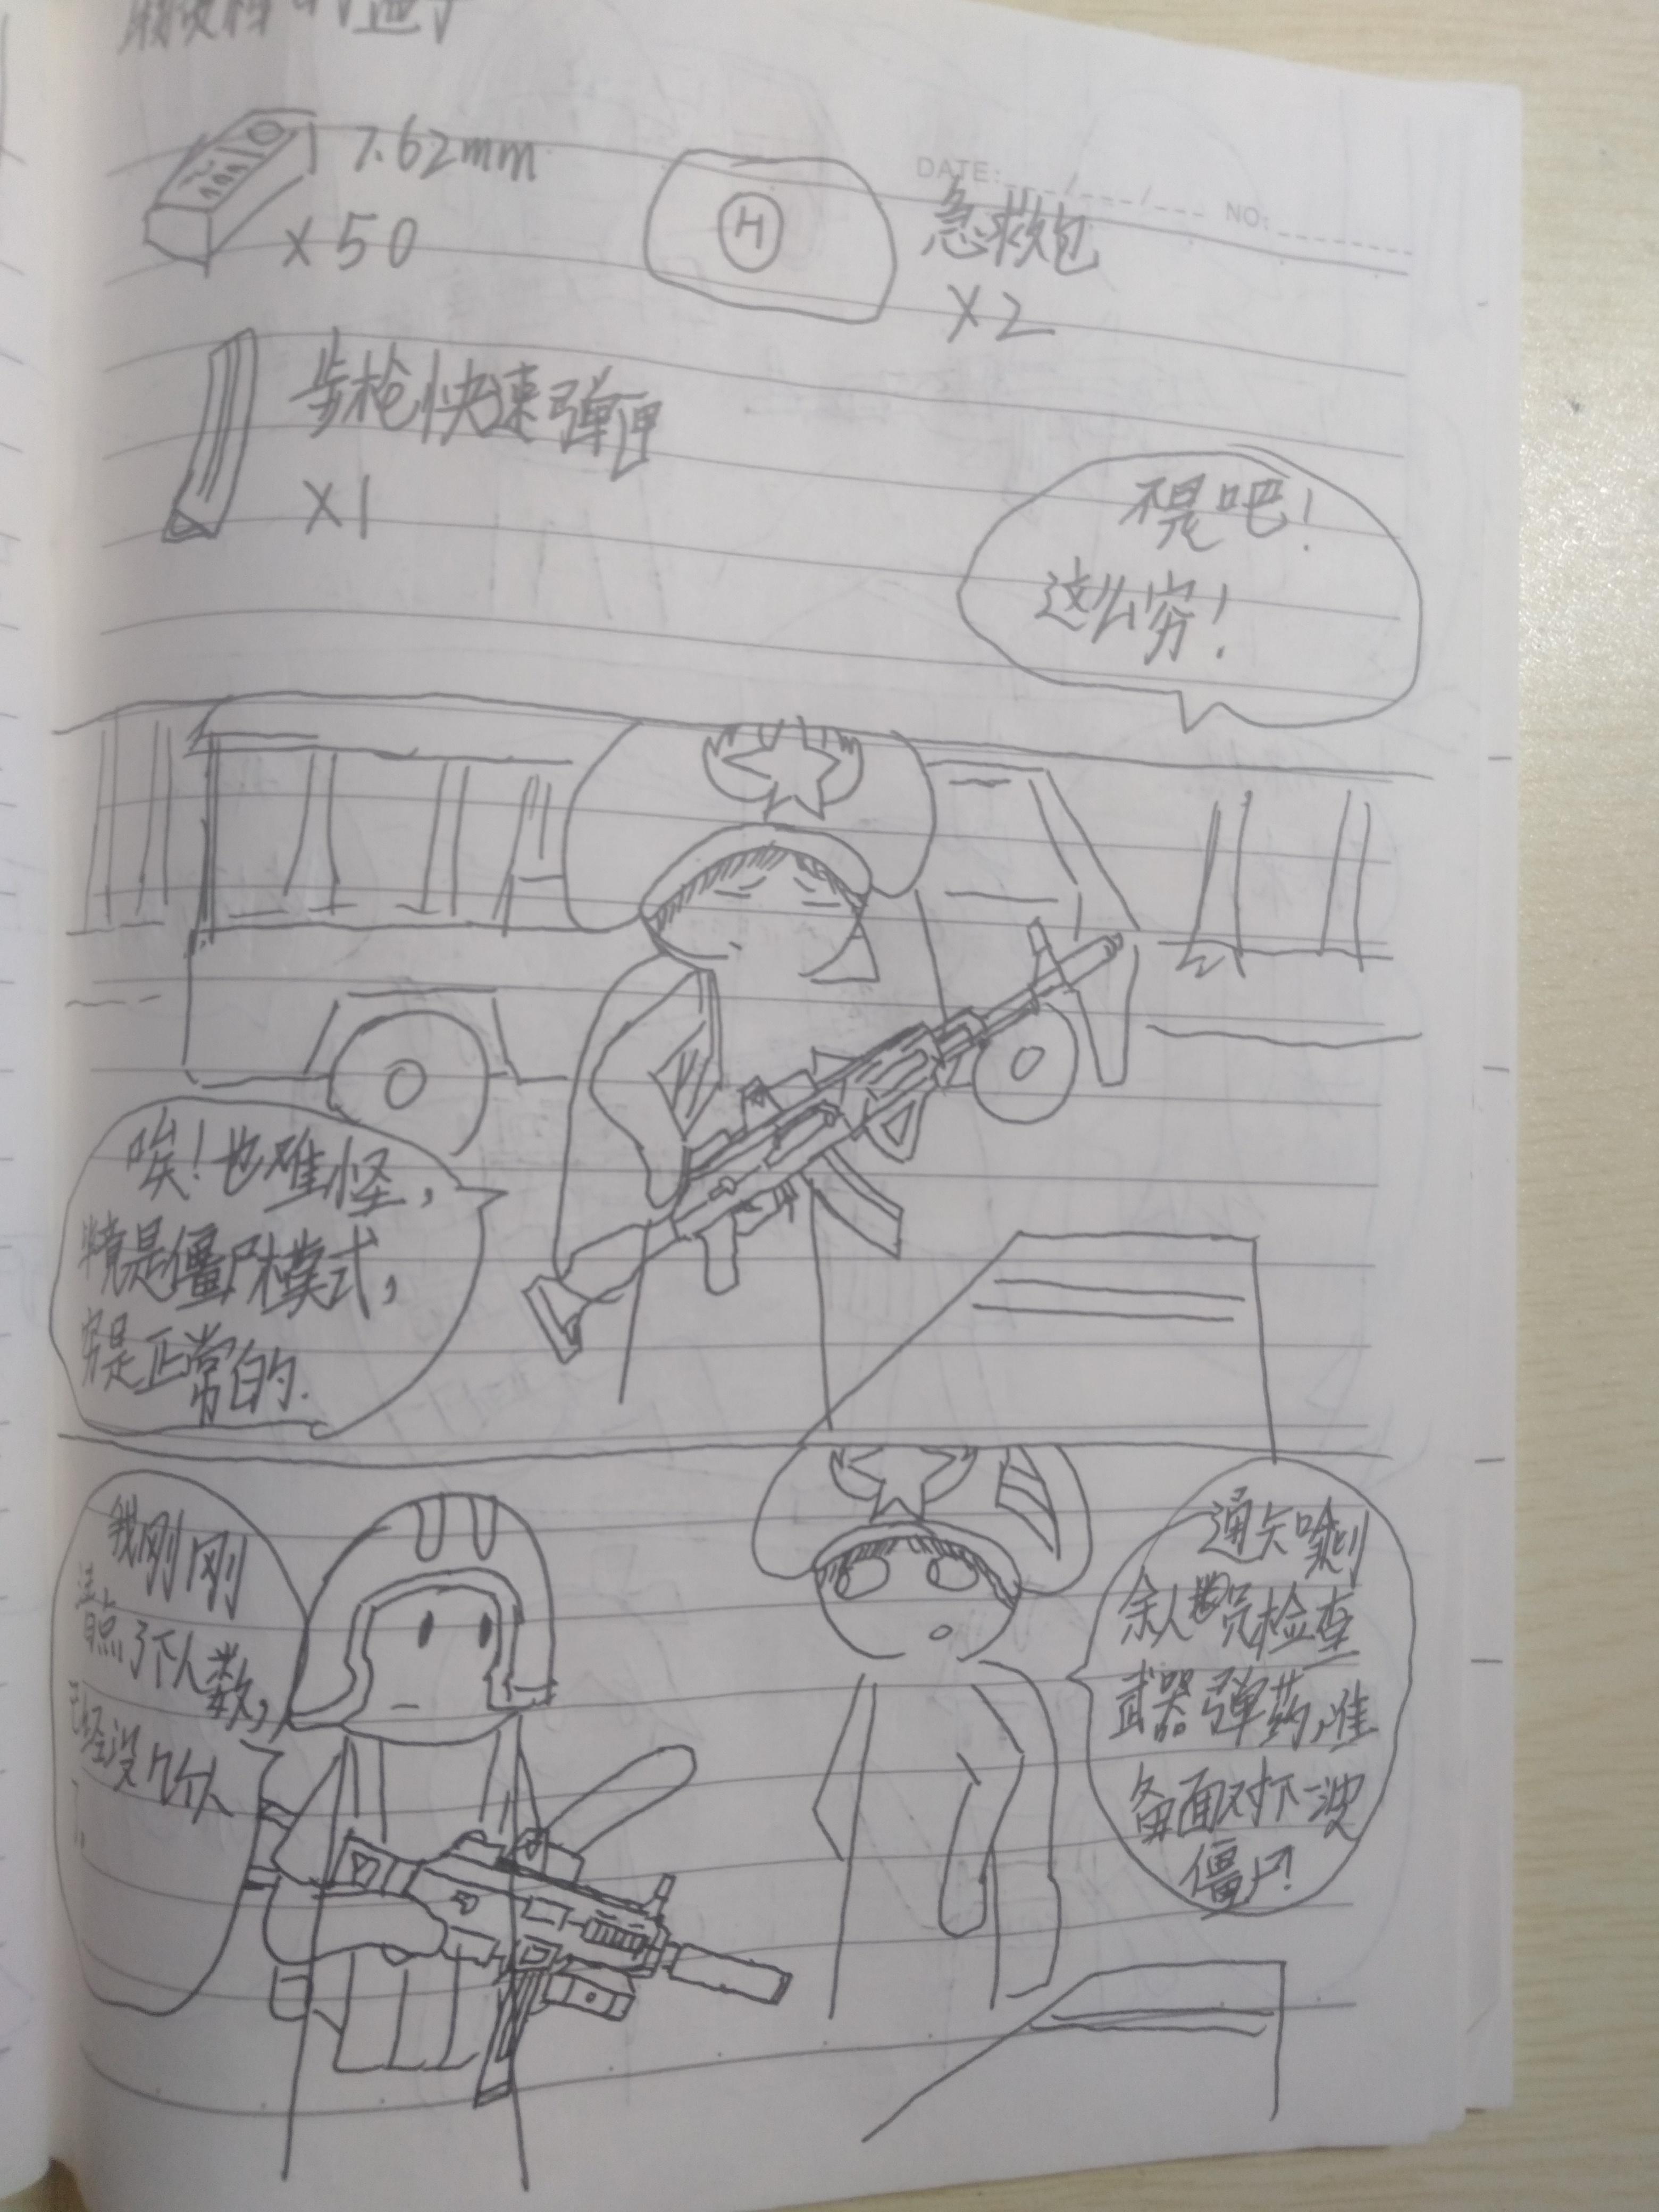 7.62mm
×50
H
急救包
×2
DATE:___/___/___ NO:
步枪快速弹匣
×1
不是吧!
这么穷!
唉!也难怪,
毕竟是僵尸模式,
穷是正常的.
我刚刚
清点了下人数,
已经没几个人
了.
通知剩
余人员检查
武器弹药,准
备面对下一波
僵尸!